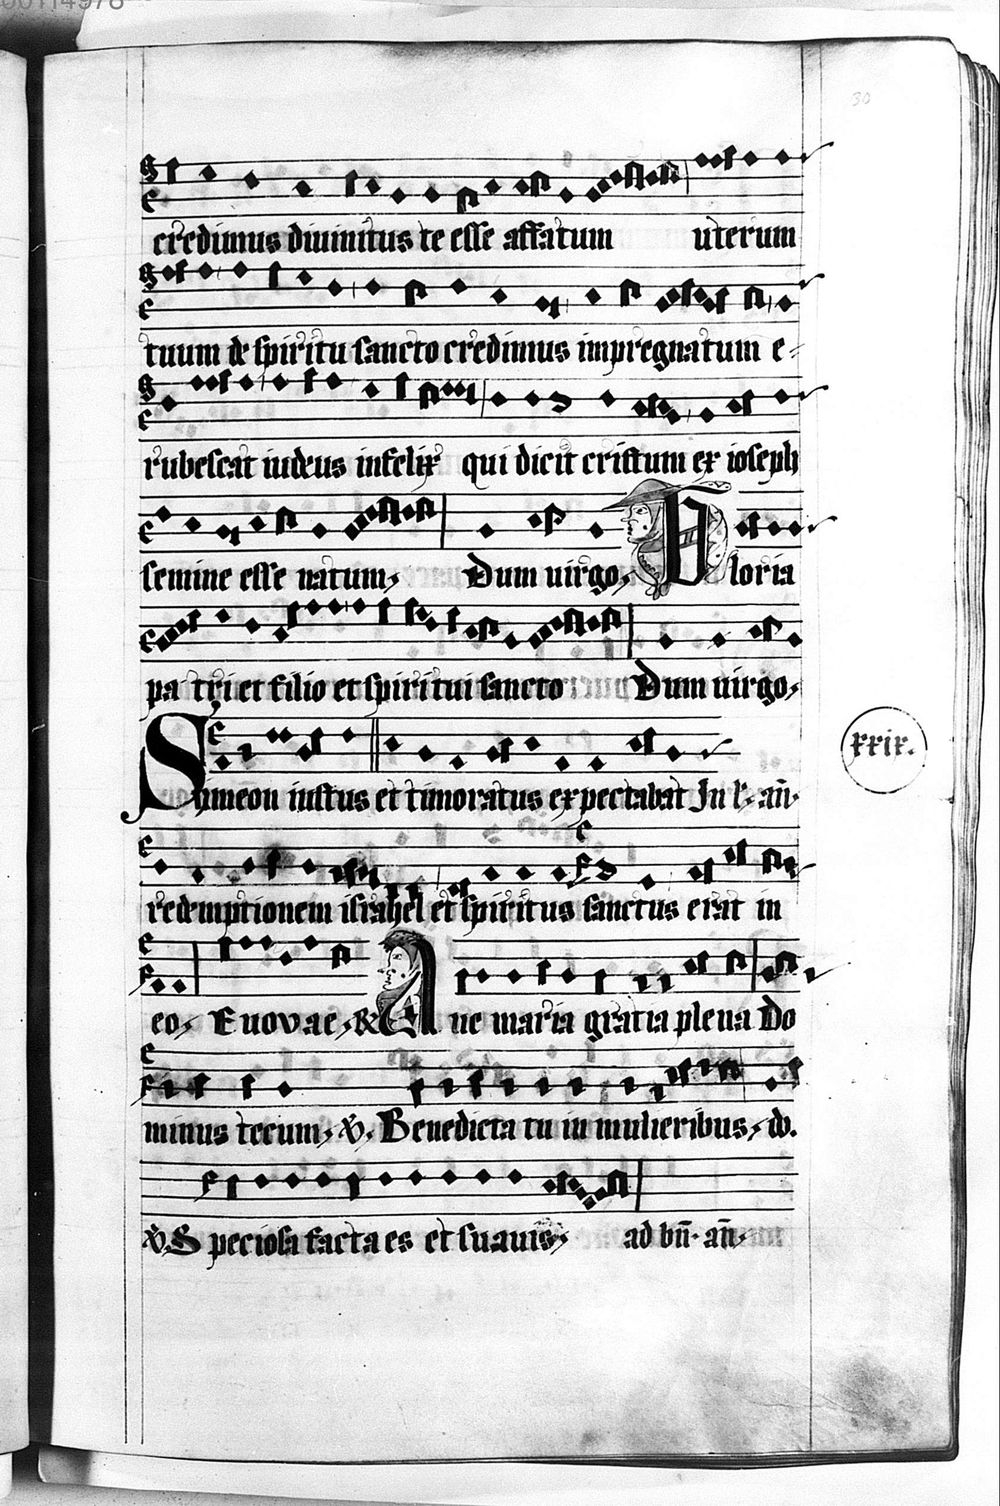 00114978
30
credimus diuinitus te esse affatum uterum
tuum de spiritu sancto credimus impregnatum e-
rubescat iudeus infelix qui dicit cristum ex ioseph
semine esse natum, Dum uirgo, Gloria
pa tri et filio et spiritui sancto Dum uirgo,
xxix.
Symeon iustus et timoratus expectabat In l. añ.
redemptionem israhel et spiritus sanctus erat in
eo, Euovae, & Aue maria gratia plena Do
minus tecum, ℣. Benedicta tu in mulieribus, do.
℣. Speciosa facta es et suauis, ad bñ. añ.